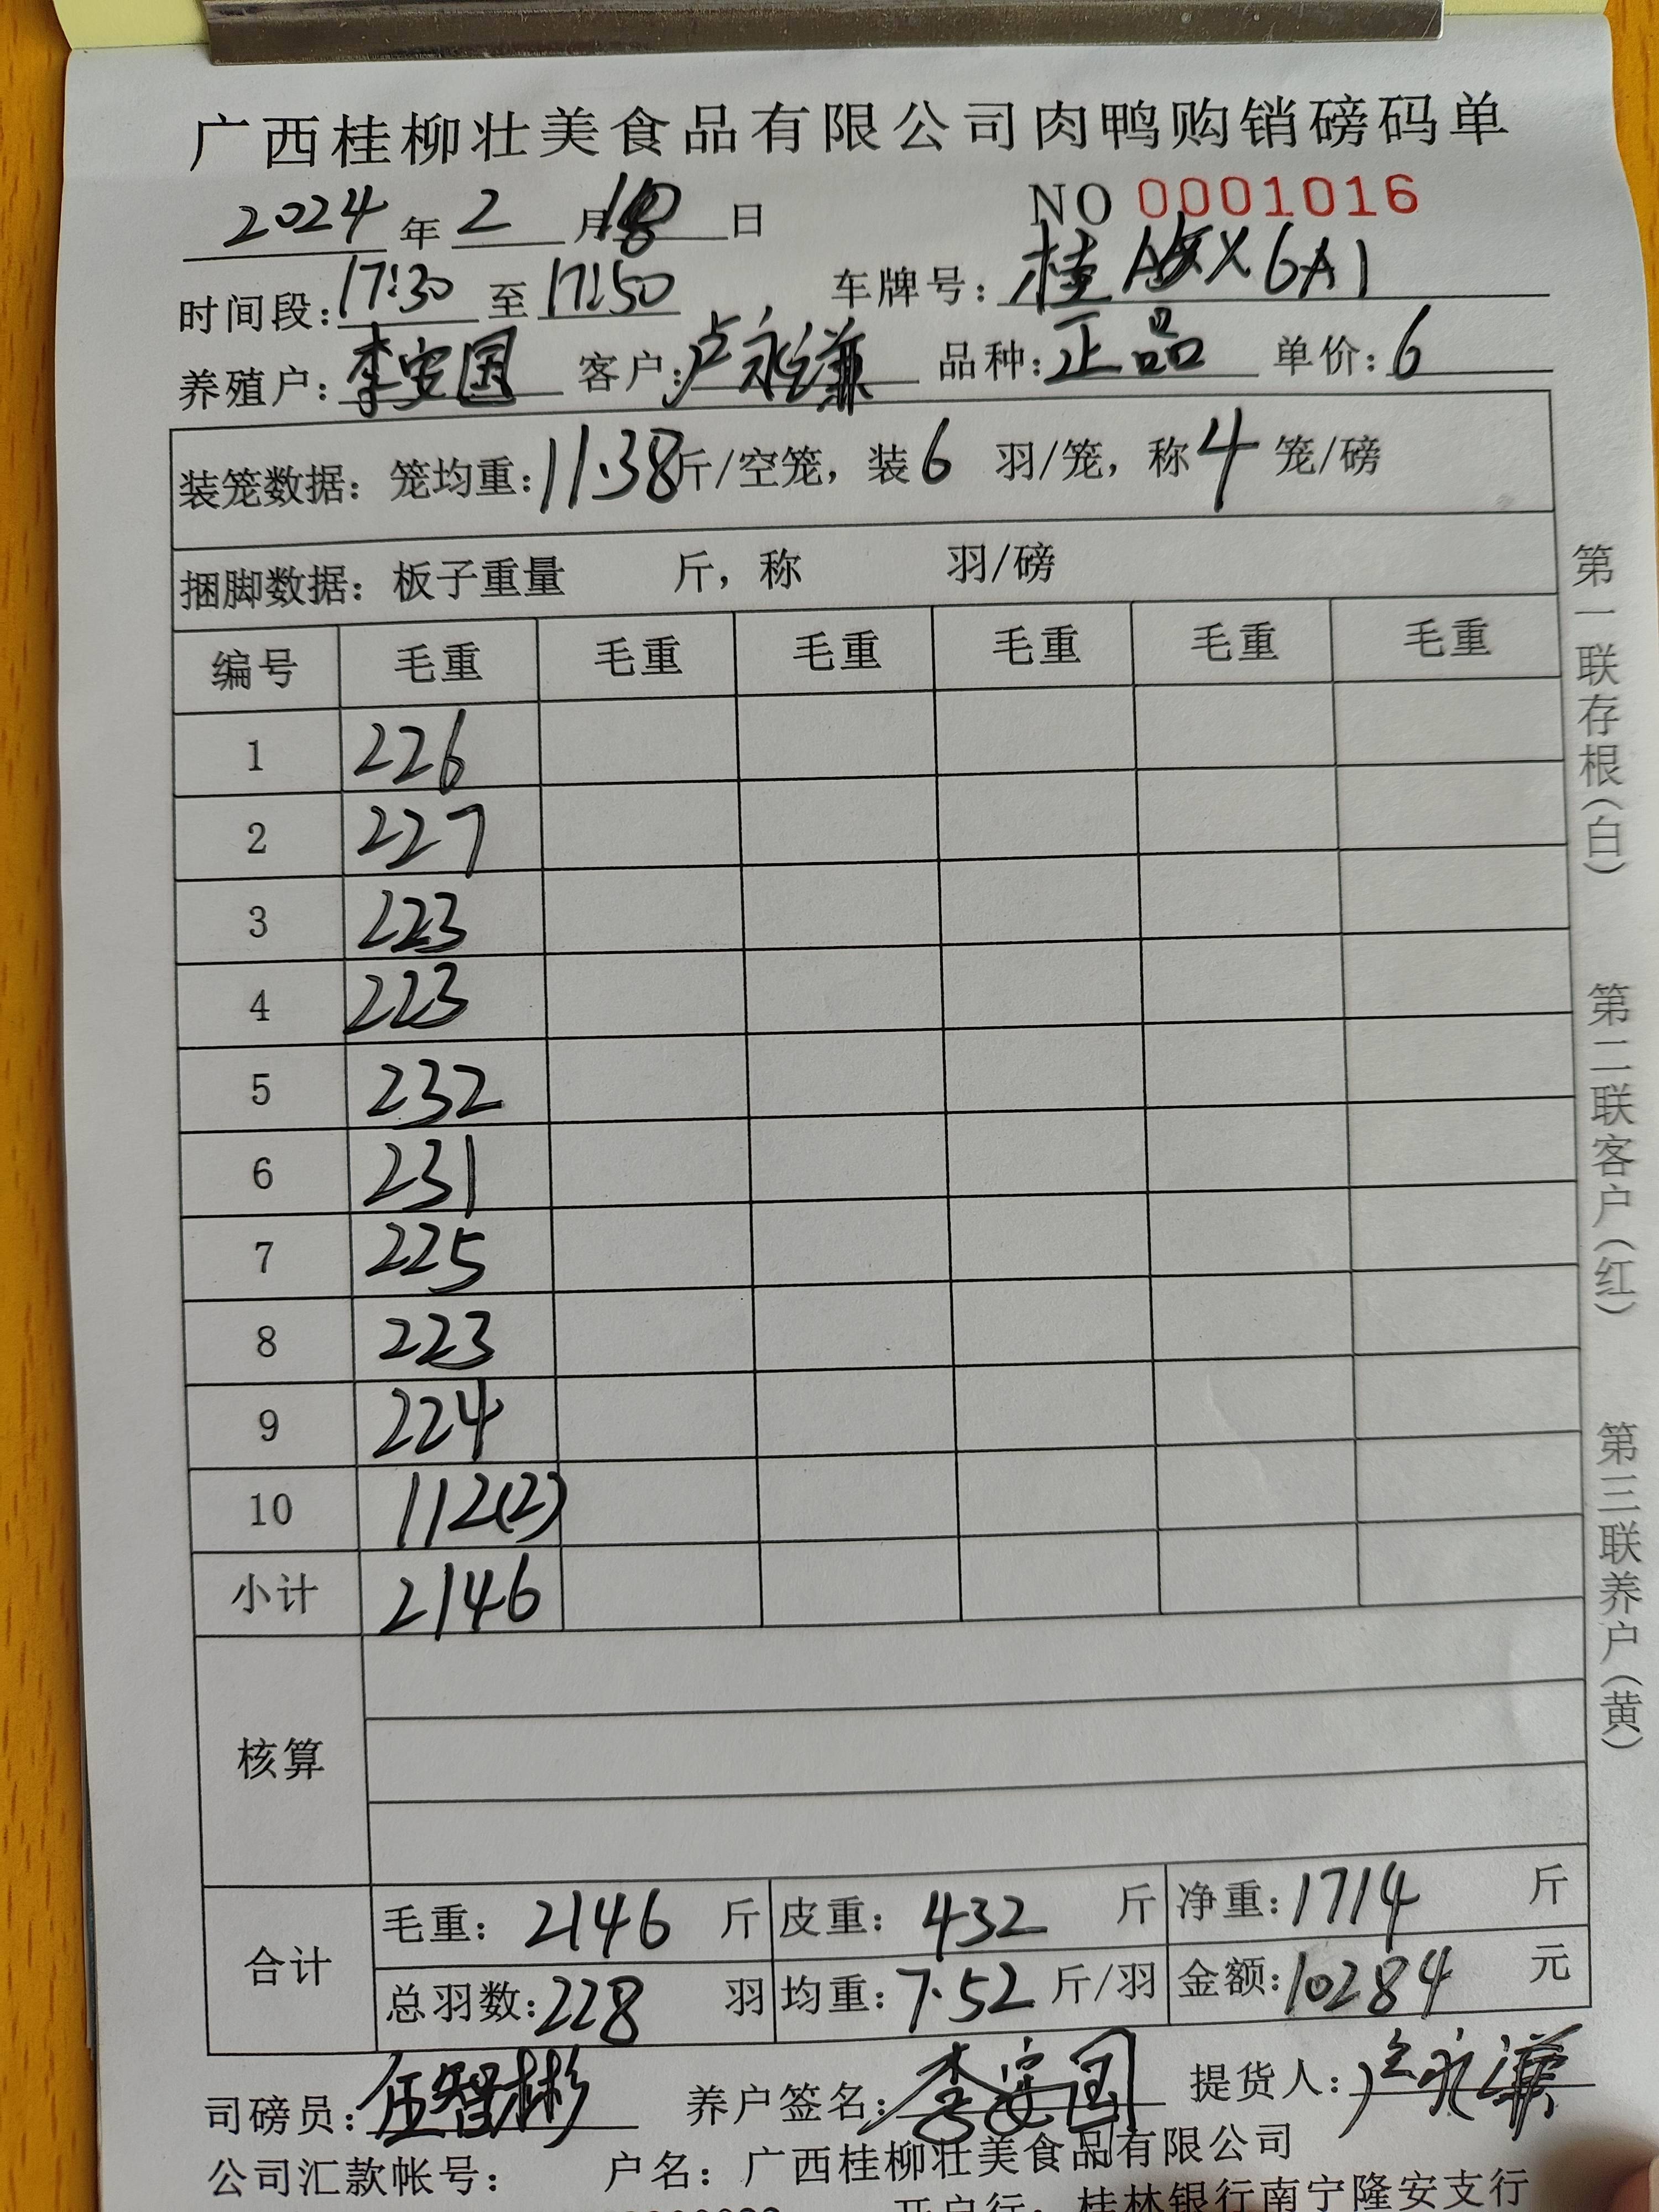 广西桂柳壮美食品有限公司肉鸭购销磅码单
2024年2月日 NO 0001016
时间段：17:30至17:50 车牌号：桂 X6A1
养殖户：李安国 客户：卢永谦 品种：正品 单价：6
装笼数据：笼均重：11.38斤/空笼，装6羽/笼，称4笼/磅
捆脚数据：板子重量 斤，称 羽/磅
编号 毛重 毛重 毛重 毛重 毛重 毛重
1 226
2 227
3 223
4 223
5 232
6 231
7 225
8 223
9 224
10 112(2)
小计 2146
核算
合计 毛重：2146斤 皮重：432斤 净重：1714斤
总羽数：228羽 均重：7.52斤/羽 金额：10284元
司磅员：伍智彬 养户签名：李安国 提货人：卢永谦
公司汇款帐号： 户名：广西桂柳壮美食品有限公司
开户行：桂林银行南宁隆安支行
第一联存根（白） 第二联客户（红） 第三联养户（黄）